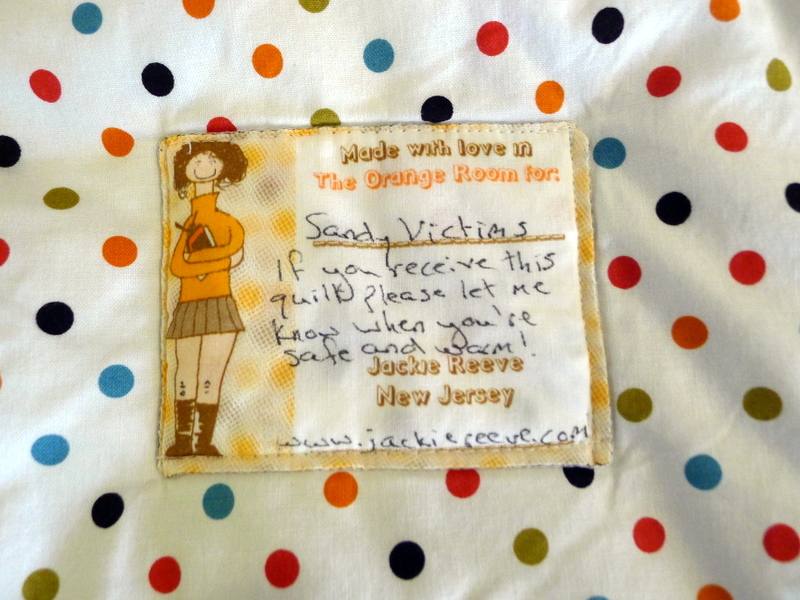 Made with love in
The Orange Room for:
Sandy Victims
If you receive this
quilt, please let me
know when you're
safe and warm!
Jackie Reeve
New Jersey
www.jackiereeve.com